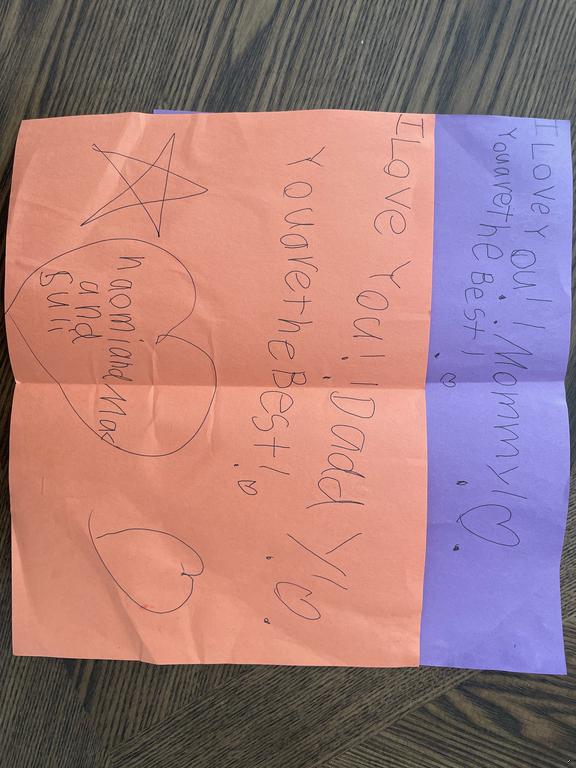 I Love You!! Mommy! ♡
You are the Best! ♡
I Love You!! Daddy! ♡
You are the Best! ♡
naomi and Mac
and
Suli